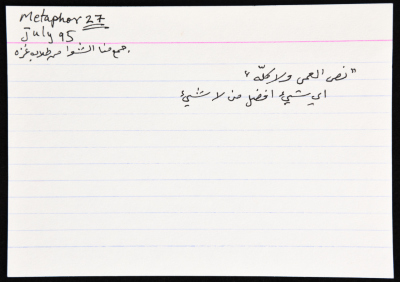 Metaphor 27
July 95
جمع مها الشوا من طلاب غزه.
"نص العمى ولا كلّه"
اي شيئ افضل من لا شيئ